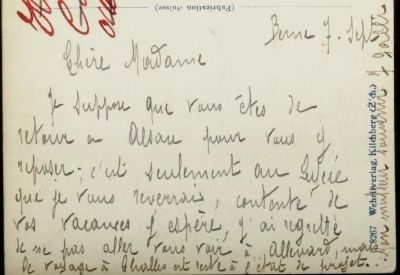 (Fabrication Suisse)
Berne 7. Sept
Chère Madame
Je suppose que vous êtes de
retour à Alsau pour vous y
reposer; c'est seulement au Lycée
que je vous reverrais, contente de
vos vacances j'espère, j'ai regretté
de ne pas aller vous voir à Allevard, mais
le voyage à Challes est resté à l'état de projet.
Mon meilleur souvenir
Wehrliverlag, Kilchberg (Zch.)